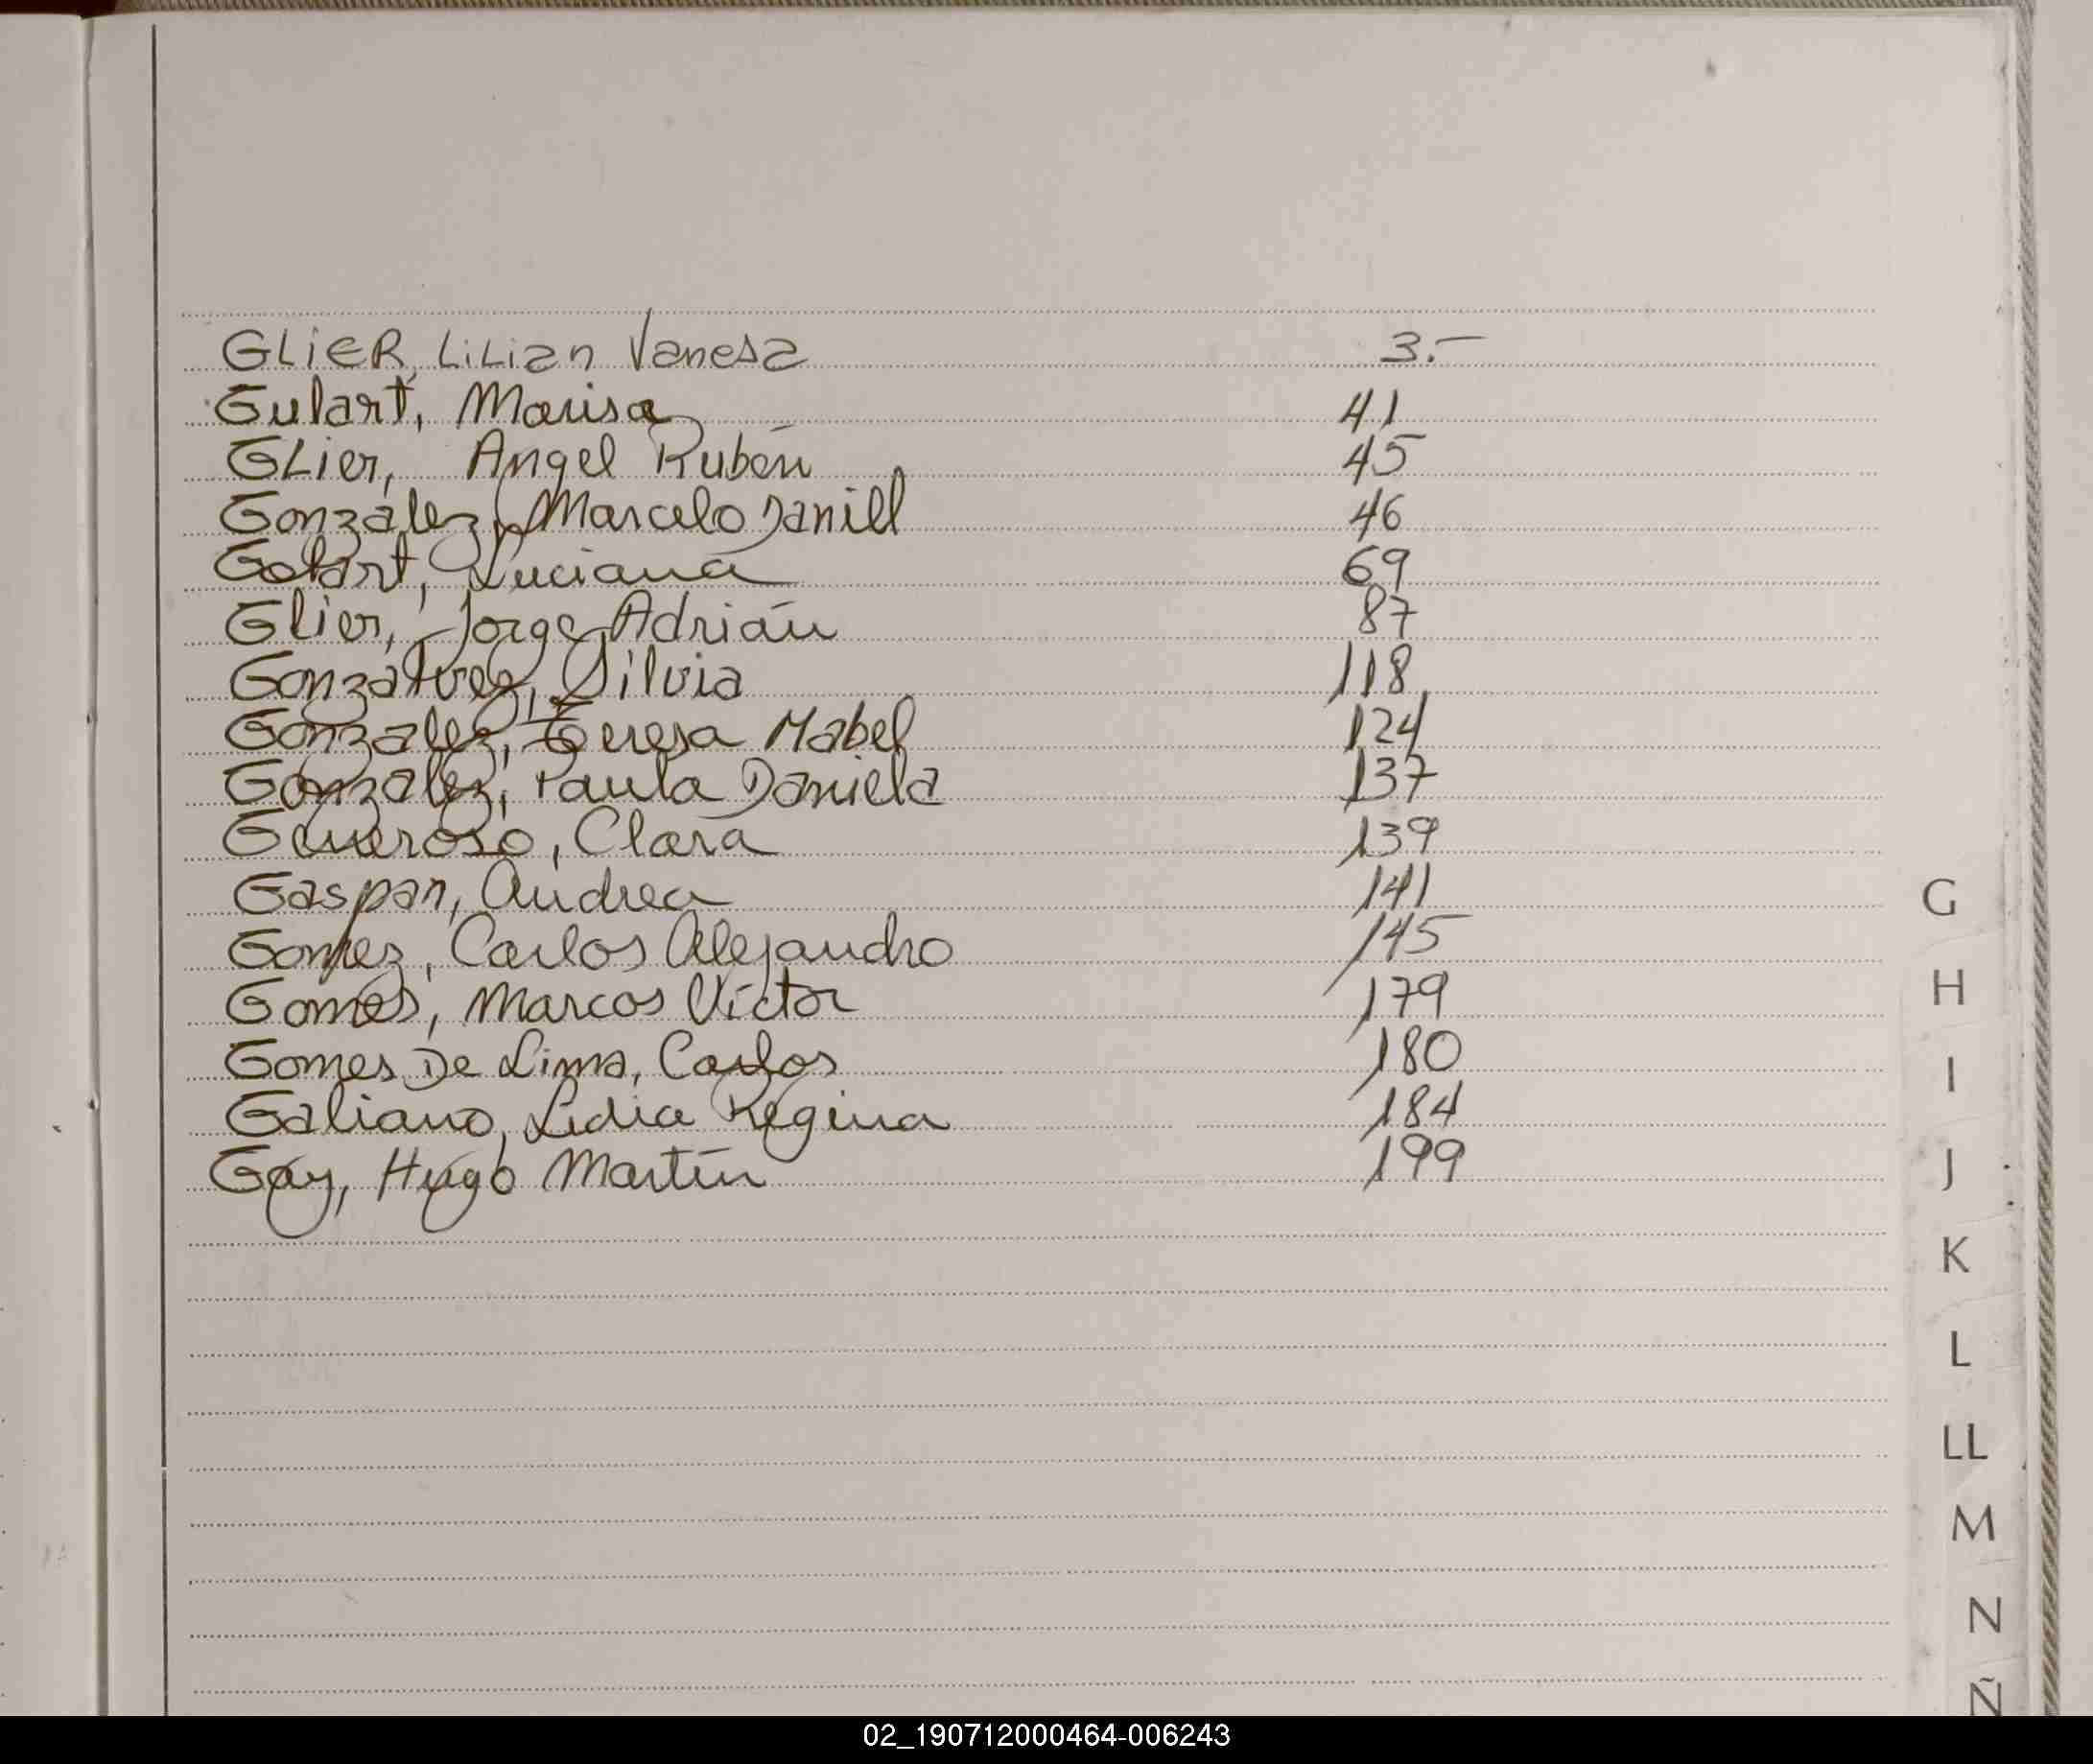 GLiER, LiLian Vanesa 3.-
Gulart, Marisa 41
GLier, Angel Rubén 45
González, Marcelo Daniel 46
Golart, Luciana 69
Glier, Jorge Adrián 87
Gonzalvez, Silvia 118
Gonzalez, Teresa Mabel 124
Gonzalez, Paula Daniela 137
Generoso, Clara 139
Gaspar, Andrea 141
Gomez, Carlos Alejandro 145
Gomes, Marcos Víctor 179
Gomes De Lima, Carlos 180
Galiano, Lidia Regina 184
Gay, Hugo Martín 199
G
H
I
J
K
L
LL
M
N
Ñ
02_190712000464-006243